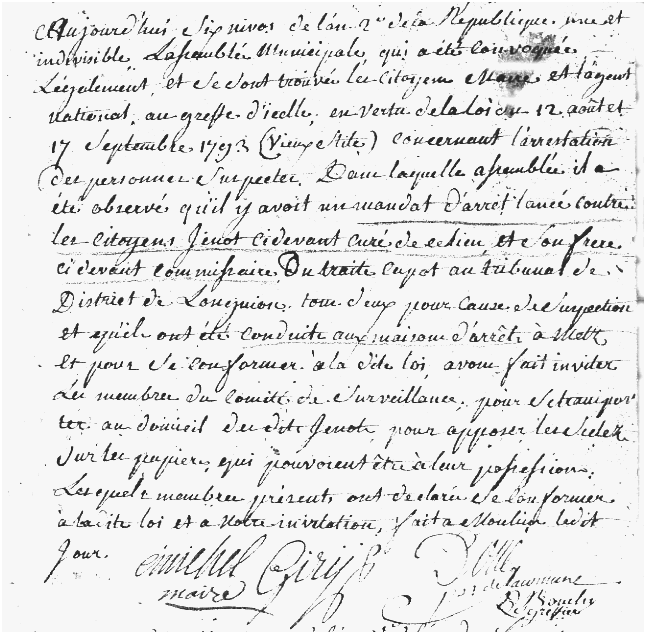 Aujourd'hui six nivos de l'an 2e de la République une et
indivisible, Lassemblée Municipale qui a été convoquée
Légalement, et se sont trouvés les citoyens Maire et l'agent
national, au greffe d'icelle, en vertu de la loi du 12 août et
17 Septembre 1793 (vieux stile) concernant l'arrestation
des personnes suspectes. Dans laquelle assemblée il a
été observé qu'il y avoit un mandat d'arrêt lancé contre
les citoyens Jenot cidevant curé de ce lieu, et son frere
cidevant commissaire Du traite au tribunal de
District de Longuion. tous deux pour cause de suspection
et qu'ils ont été conduits aux maisons d'arrêts à Metz
et pour se conformer à la dite loi, avons fait inviter
Les membres du comité de Surveillance, pour se transpor
ter au domicil des dits Jenots, pour apposer les scelez
sur les papiers, qui pouvoient être à leur possession.
Lesquels membres présents ont declarés se conformer
à la dite loi et à notre invitation, fait a Moulins ledit
Jour.
maire
de la commune
Greffier